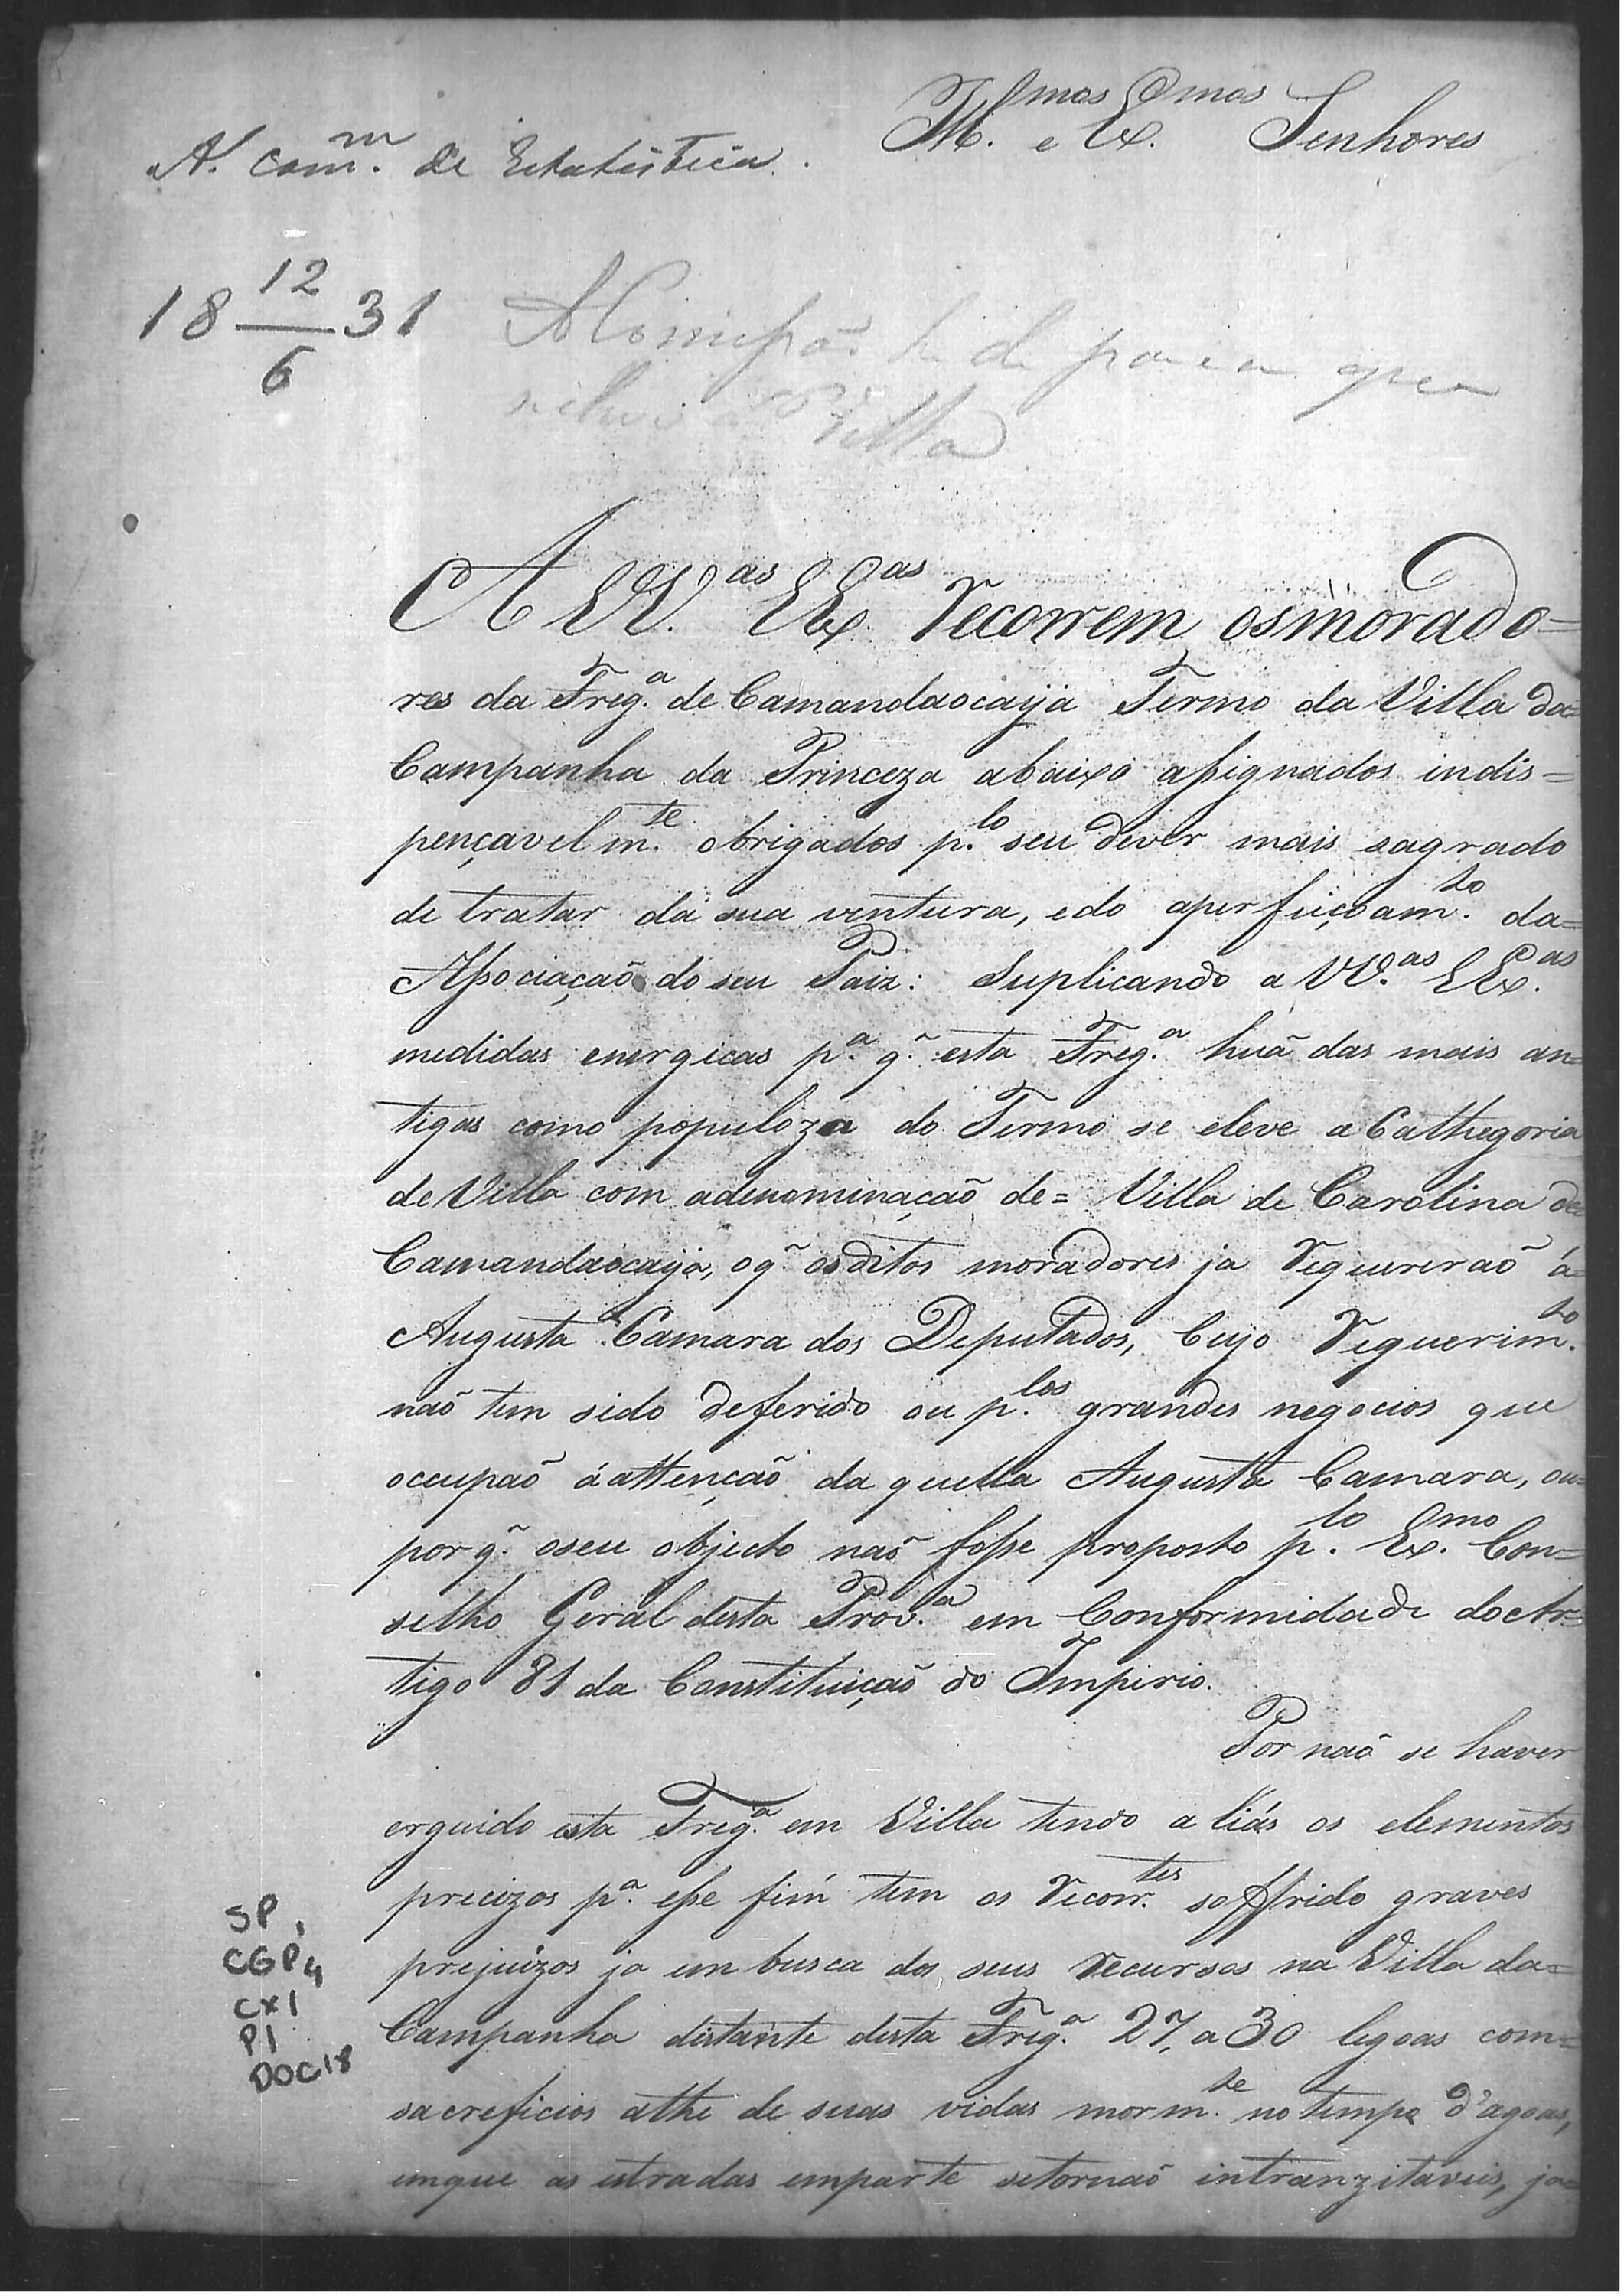 Ill.mos e Ex.mos Senhores
A' Com.m de Estatistica.
18 12/6 31
A Comissão
Villa
A VV.as EEx.as recorrem os morado=
res da Freg.a de Camandaocaija Termo da Villa da=
Campanha da Princeza abaixo assignados indis=
pençavelm.te obrigados p.lo seu dever mais sagrado
de tratar da sua ventura, e do aperfeiçoam.to da=
Associação do seu Paiz: Suplicando a VV.as EEx.as
medidas energicas p.a q.~ esta Freg.a huã das mais an=
tigas como populoza do Termo se eleve a Cathegoria
de Villa com adenominação de= Villa de Carolina de
Camandaocaija, o q.~ os ditos moradores ja requererão á=
Augusta Camara dos Deputados, Cujo requerim.to
não tem sido deferido ou p.los grandes negocios que
occupão á attenção da quella Augusta Camara, ou=
por q.~ o seu objecto não fosse proposto p.lo Ex.mo Con=
selho Geral desta Prov.a em Conformidade do Ar=
tigo 81 da Constituição do Imperio.
Por não se haver
erguido esta Freg.a em Villa tendo a liás os elementos
precizos p.a esse fim tem os recorr.tes soffrido graves
prejuizos ja em busca dos seus recursos na Villa da=
Campanha distante desta Freg.a 27, a 30 legoas com=
sacreficios athe de suas vidas morm.te no tempo d'agoas,
emque as estradas emparte setornão intranzitaveis, ja=
SP,
CGP4
CX1
P1
DOC18